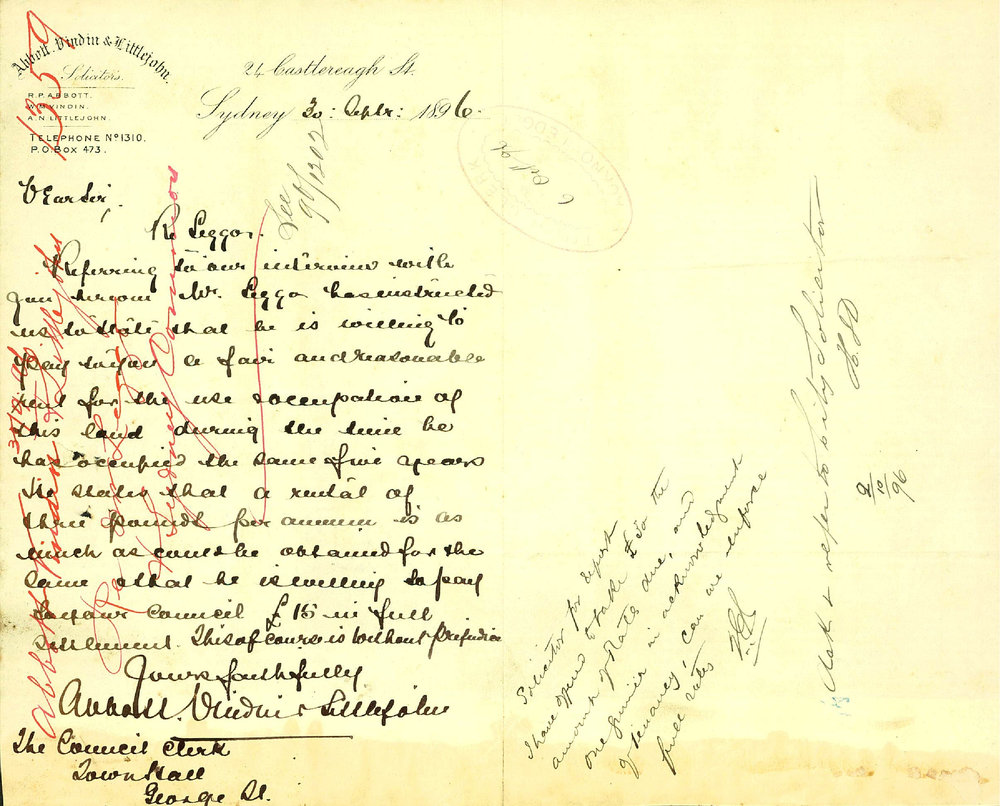 Abbott, Vindin & Littlejohn.
Solicitors.
R.P. ABBOTT.
W.M. VINDIN.
A.N. LITTLEJOHN.
TELEPHONE Nº 1310.
P.O. BOX 473.
1359
24 Castlereagh St.
Sydney 30: Septr: 1896.
See
96/1202
6 Oct 96
Dear Sir,
Re Leggo.
Referring to our interview with
you hereon Mr. Leggo has instructed
us to state that he is willing to
pay to you a fair and reasonable
rent for the use & occupation of
this land during the time he
has occupied the same five years
He states that a rental of
three pounds per annum is as
much as could be obtained for the
same & that he is willing to pay
to your Council £15 in full
settlement. This of course is without prejudice
Yours faithfully
Abbott, Vindin & Littlejohn
The Council Clerk
Town Hall
George St.
30/9/96
Abbott Vindin & Littlejohn
Re Leggo
Sydney Common
Solicitor for report
I have
amount of Rate due, and
one guinea in acknowledgment
of tenancy, can we enforce
full rates
Ask & refer to City Solicitor
2/10/96